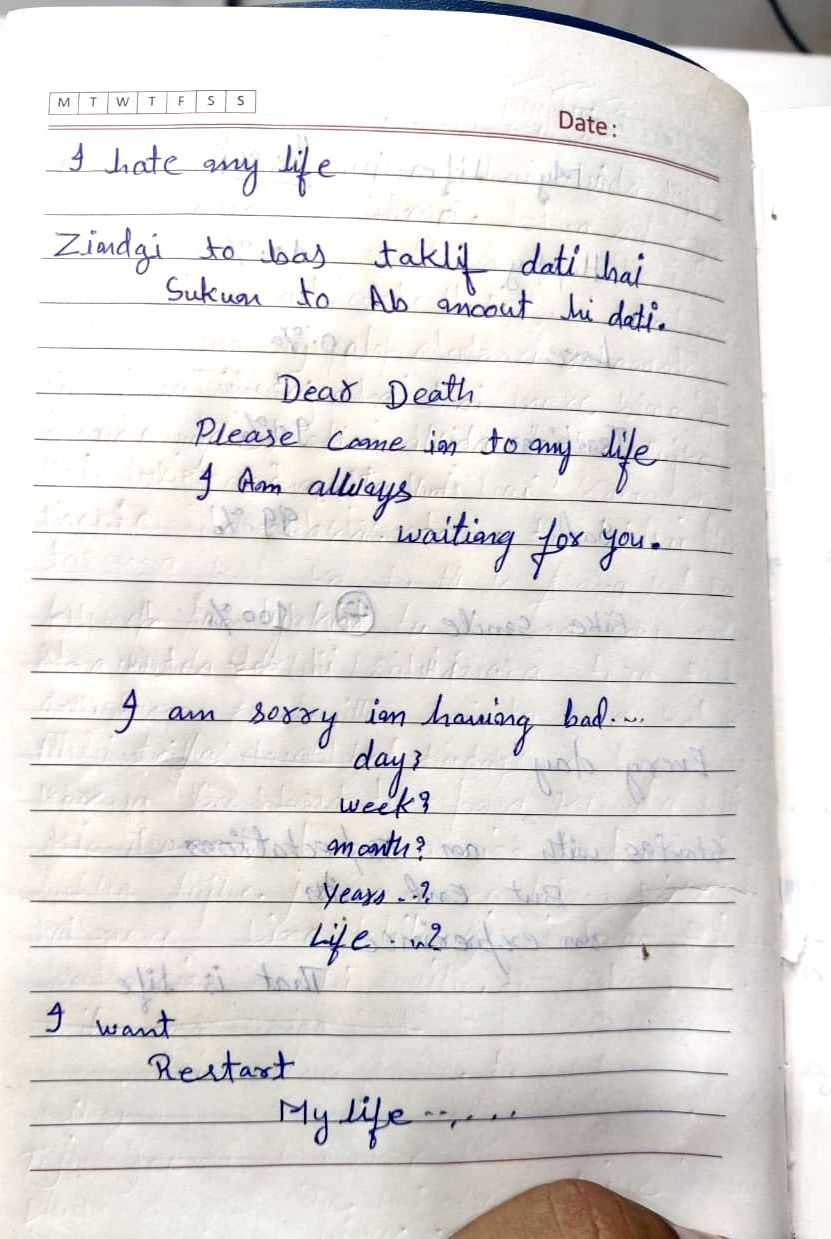 M T W T F S S
Date:
I hate my life
Zindgi to bas taklif dati hai
Sukun to Ab moout hi dati.
Dear Death
Please Come in to my life
I Am allways
waiting for you.
I am sorry im having bad....
day?
week?
month?
Years ..?
Life ...?
I want
Restart
My life .......